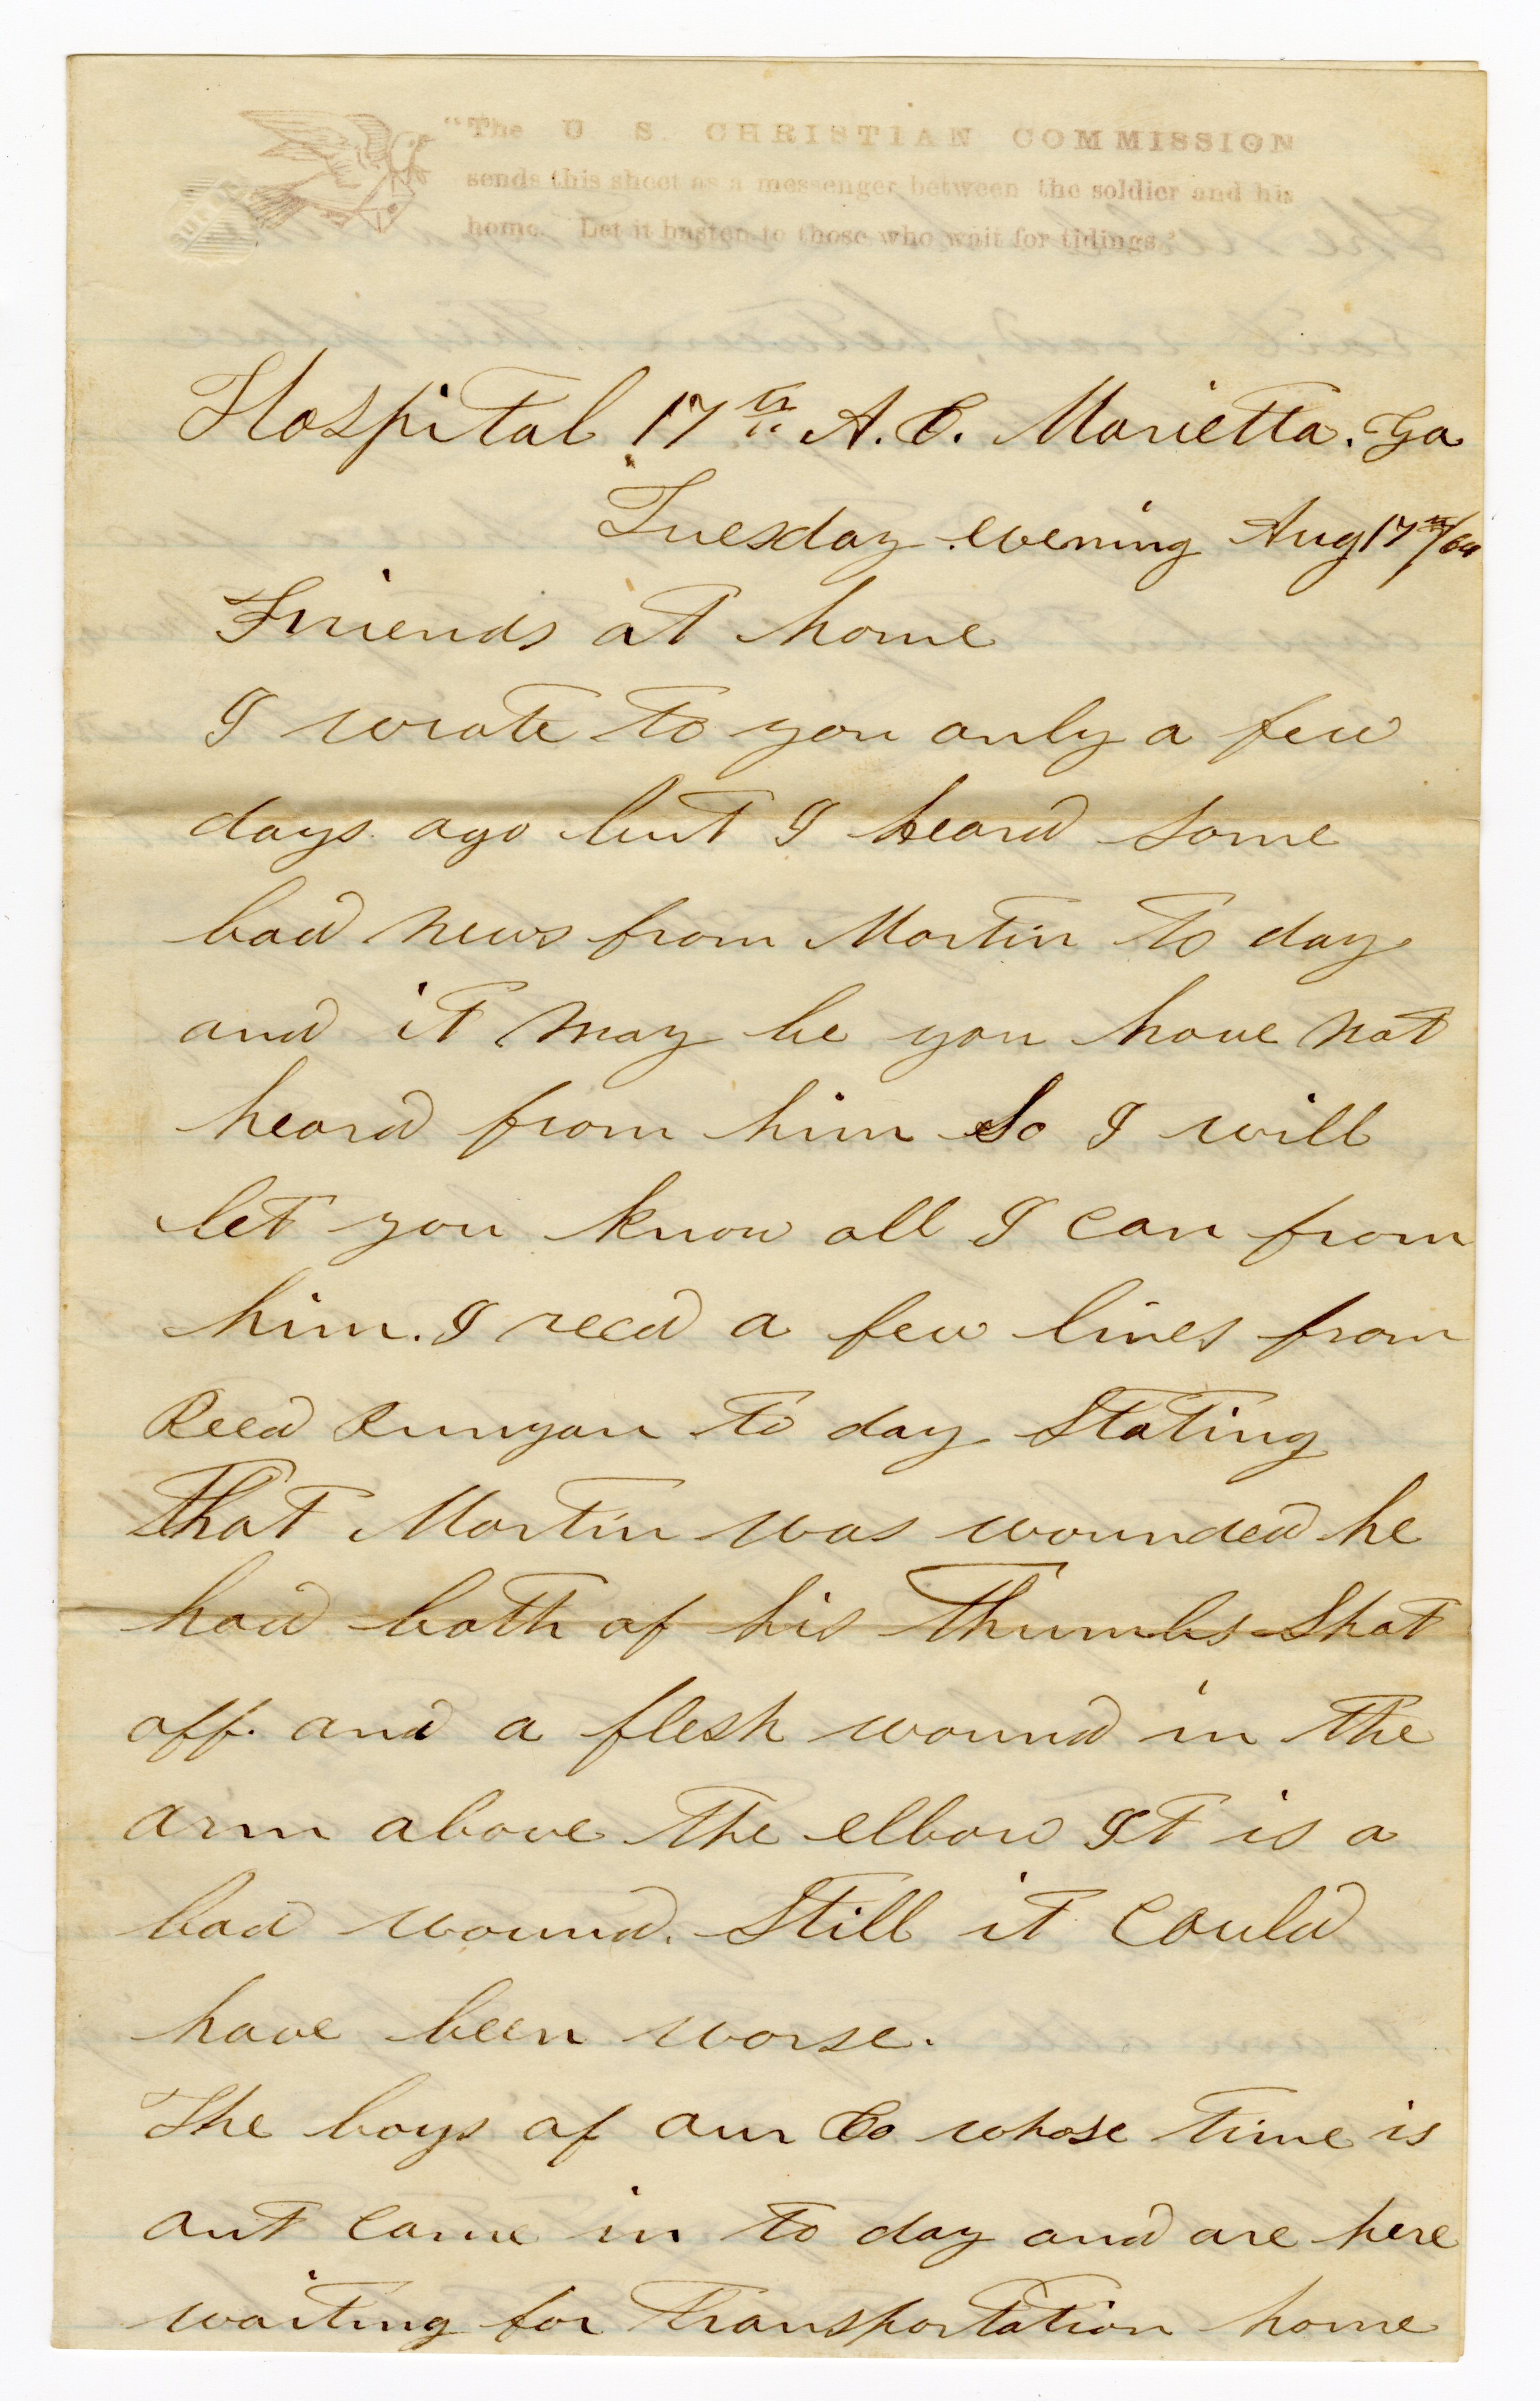 "The U. S. CHRISTIAN COMMISSION
sends this sheet as a messenger between the soldier and his
home. Let it hasten to those who wait for tidings."
Hospital 17th A. C. Marietta. Ga
Tuesday evening Aug 17th/64
Friends at home
I wrote to you only a few
days ago but I heard some
bad news from Martin to day
and it may be you have not
heard from him So I will
let you know all I can from
him. I recd a few lines from
Reed Runyan to day Stating
that Martin was wounded he
had both of his thumbs Shot
off. and a flesh wound in the
arm above the elbow It is a
bad wound. Still it could
have been worse.
The boys of our Co whose time is
out came in to day and are here
waiting for transportation home